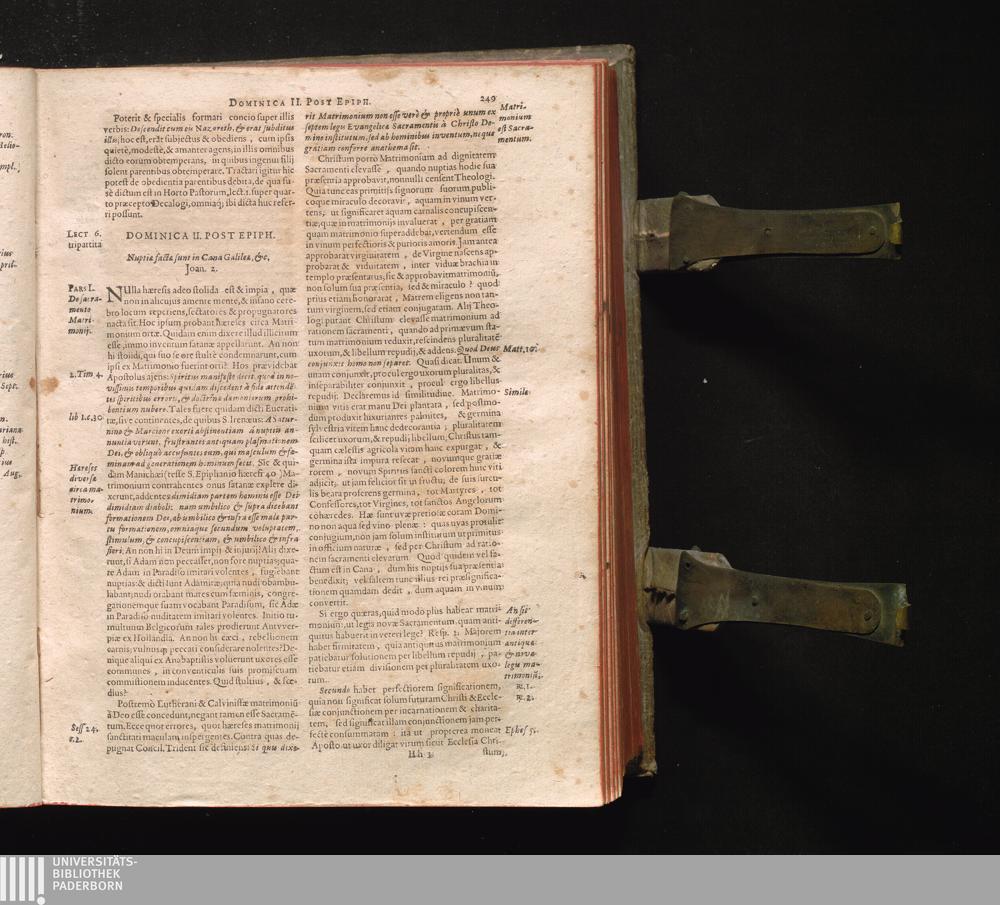 DOMINICA II. POST EPIPH.
249
Poterit & specialis formari concio super illis
verbis: Descendit cum eis Nazareth, & erat subditus
illis; hoc est, erāt subjectus & obediens, cum ipsis
quietè, modestè, & amanter agens, in illis omnibus
dicto eorum obtemperans, in quibus ingenui filij
solent parentibus obtemperare. Tractari igitur hic
potest de obedientia parentibus debita, de qua fu-
sè dictum est in Horto Pastorum, lect. 1. super quar-
to præcepto Decalogi, omniaq; ibi dicta huc refer-
ri possunt.
LECT 6.
tripartita
DOMINICA II. POST EPIPH.
Nuptiæ factæ sunt in Cana Galileæ, &c,
Joan. 2.
PARS I.
De sacra-
mento
Matri-
monij.
NUlla hæresis adeo stolida est & impia, quæ
non in alicujus amente mente, & insano cere-
bro locum reperiens, sectatores & propugnatores
nacta sit. Hoc ipsum probant hæreses circa Matri-
monium ortæ. Quidam enim dixere illud illicitum
esse, immo inventum satanæ appellarunt. An non
hi stolidi, qui suo se ore stultè condemnarunt, cum
ipsi ex Matrimonio fuerint orti? Hos prævidit
2. Tim. 4.
Apostolus ajens: Spiritus manifestè dicit, quod in no-
vissimis temporibus quidam discedent à fide attendē-
tes spiritibus erroris, & doctrinis dæmoniorum prohi-
bentium nubere. Tales fuere quidam dicti Encrati-
lib 1. c. 30
tæ, sive continentes, de quibus S. Irenæus: A Satur-
nino & Marcione exorti abstinentiam à nuptiis an-
nuntiaverunt, frustrantes antiquam plasmationem
Dei, & obliquè accusantes eum, qui masculum & fœ-
minam ad generationem hominum fecit. Sic & qui-
Hæreses
diversæ
circa ma-
trimo-
nium.
dam Manichæi (teste S. Epiphanio hæresi 40) Ma-
trimonium contrahentes onus satanæ explere di-
xerunt, addentes dimidiam partem hominis esse Dei
dimidiam diaboli: nam umbilico & supra dicebant
formationem Dei, ab umbilico & infra esse malæ par-
tis formationem, omniaque secundum voluptatem,
stimulum, & concupiscentiam, & umbilico & infra
fieri. An non hi in Deum impij & injurij? Alij dixe-
runt, si Adam non peccasset, non fore nuptias; qua-
re Adam in Paradiso imitari volentes, fugiebant
nuptias: & dicti sunt Adamitæ, quia nudi obambu-
labant; nudi orabant mares cum fœminis, congre-
gationemque suam vocabant Paradisum, sic Adæ
in Paradiso nuditatem imitari volentes. Initio tu-
multuum Belgicorum tales prodierunt Antver-
piæ ex Hollandia. An non hi cæci, rebellionem
carnis, vulnusq; peccati considerare nolentes? De-
nique aliqui ex Anabaptistis voluerunt uxores esse
communes, in conventiculis suis promiscuam
commistionem inducentes. Quid stultius, & fœ-
dius?
Postremò Lutherani & Calvinistæ matrimoniū
à Deo esse concedunt, negant tamen esse Sacramē-
Sess 24.
c. 2.
tum. Ecce quot errores, quot hæreses matrimonij
sanctitati maculam inspergentes. Contra quas de-
pugnat Concil. Trident sic definiens: Si quis dixe-
rit Matrimonium non esse verè & propriè unum ex
septem legis Evangelicæ Sacramentis à Christo Do-
mino institutum, sed ab hominibus inventum, neque
gratiam conferre anathema sit.
Matri-
monium
est Sacra-
mentum.
Christum porrò Matrimonium ad dignitatem
Sacramenti elevasse, quando nuptias hodie sua
præsentia approbavit, nonnulli censent Theologi.
Quia tunc eas primitiis signorum suorum, publi-
coque miraculo decoravit, aquam in vinum ver-
tens, ut significaret aquam carnalis concupiscen-
tiæ, quæ in matrimonijs invaluerat, per gratiam
quam matrimonio superaddebat, vertendum esse
in vinum perfectioris & purioris amoris. Jam antea
approbarat virginitatem, de Virgine nascens ap-
probarat & viduitatem, inter viduæ brachia in
templo præsentatus; sic & approbavit matrimoniū,
non solum sua præsentia, sed & miraculo? quod
prius etiam honorarat, Matrem eligens non tan-
tum virginem, sed etiam conjugatam. Alij Theo-
logi putant Christum elevasse matrimonium ad
rationem sacramenti, quando ad primævum sta-
tum matrimonium reduxit, rescindens pluralitatē
uxorum, & libellum repudij, & addens. Quod Deus
conjunxit homo non separet. Quasi dicat. Unum &
Matt. 19.
unam conjunxit, procul ergo uxorum pluralitas, &
inseparabiliter conjunxit, procul ergo libellus
repudij. Declaremus id similitudine. Matrimo-
Simile.
nium vitis erat manu Dei plantata, sed postmo-
dum produxit luxuriantes palmites, & germina
sylvestria vitem hanc dedecorantia; pluralitatem
scilicet uxorum, & repudij libellum, Christus tam-
quam cælestis agricola vitem hanc expurgat, &
germina ista impura resecat, novumque gratiæ
rorem, novum Spiritus sancti colorem huic viti
adijcit, ut jam felicior sit in fructu, de suis surcu-
lis beata proferens germina, tot Martyres, tot
Confessores, tot Virgines, tot sanctos Angelorum
cohæredes. Hæ sunt uvæ pretiosæ coram Domi-
no non aqua sed vino plenæ: quas uvas protulit
conjugium, non jam solum institutum ut primitus
in officium naturæ, sed per Christum ad ratio-
nem sacramenti elevatum. Quod quidem vel fa-
ctum est in Cana, dum his nuptiis sua præsentia
benedixit; vel saltem tunc illius rei præsignifica-
tionem quamdam dedit, dum aquam in vinum
convertit.
Si ergo quæras, quid modo plus habeat matri-
An sit
differen-
tia inter
antiquæ
& novæ
legis ma-
trimoniū,
monium, ut legis novæ Sacramentum. quam anti-
quitus habuerit in vetere lege? Resp. 1. Majorem
habet firmitatem, quia antiquitus matrimonium
patiebatur solutionem per libellum repudij, pa-
tiebatur etiam divisionem per pluralitatem uxo-
rum.
Secundo habet perfectiorem significationem,
℟. 1.
℟. 2.
quia non significat solum futuram Christi & Eccle-
siæ conjunctionem per incarnationem & charita-
tem, sed significat illam conjunctionem jam per-
fectè consummatam: ita ut propterea moneat
Ephes 5.
Aposto. ut uxor diligat virum sicut Ecclesia Chri-
Hh 3
stum;
UNIVERSITÄTS-
BIBLIOTHEK
PADERBORN